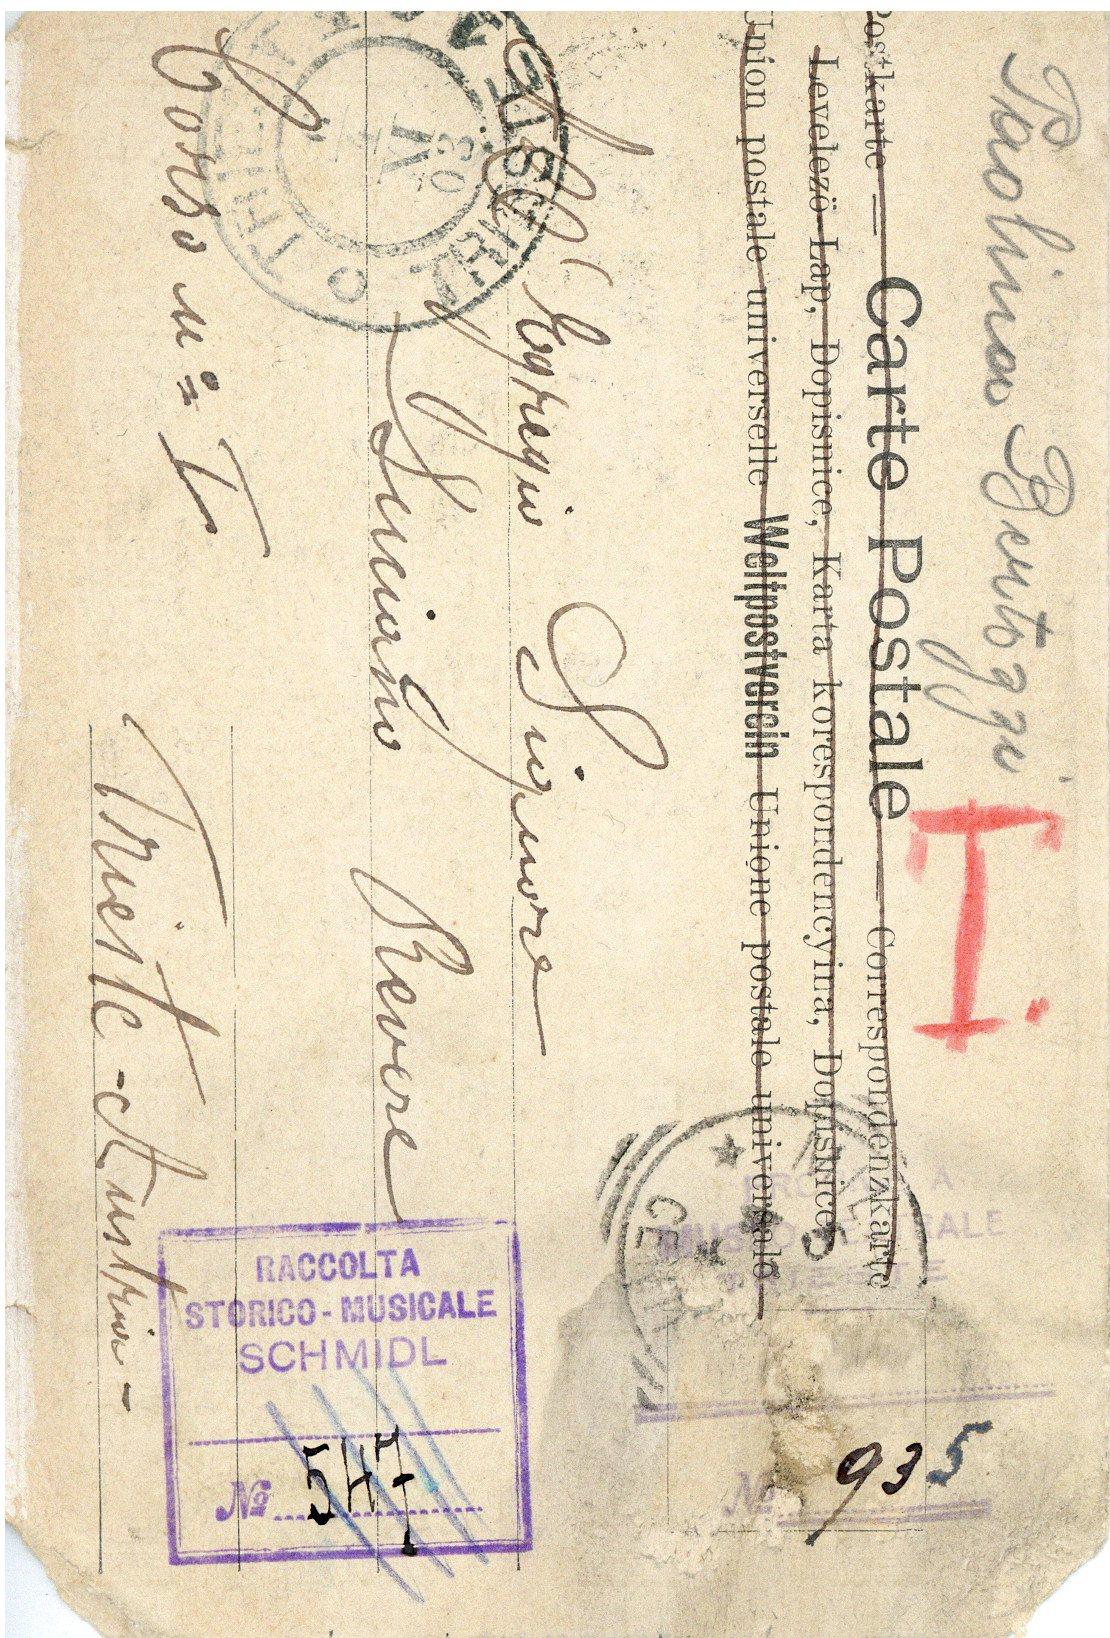 Postkarte — Carte Postale — Correspondenzkarte
Levelező-Lap, Dopisnice, Karta korespondencyina, Dopisnice
Union postale universelle Weltpostverein Unione postale universale
T.
All' Egregio Signore
Luciano Revere
Corso nº 1
Trieste - Austria -
TRIEST
TRIESTE
30
XI
RACCOLTA
STORICO-MUSICALE
SCHMIDL
№ 547
№ 935